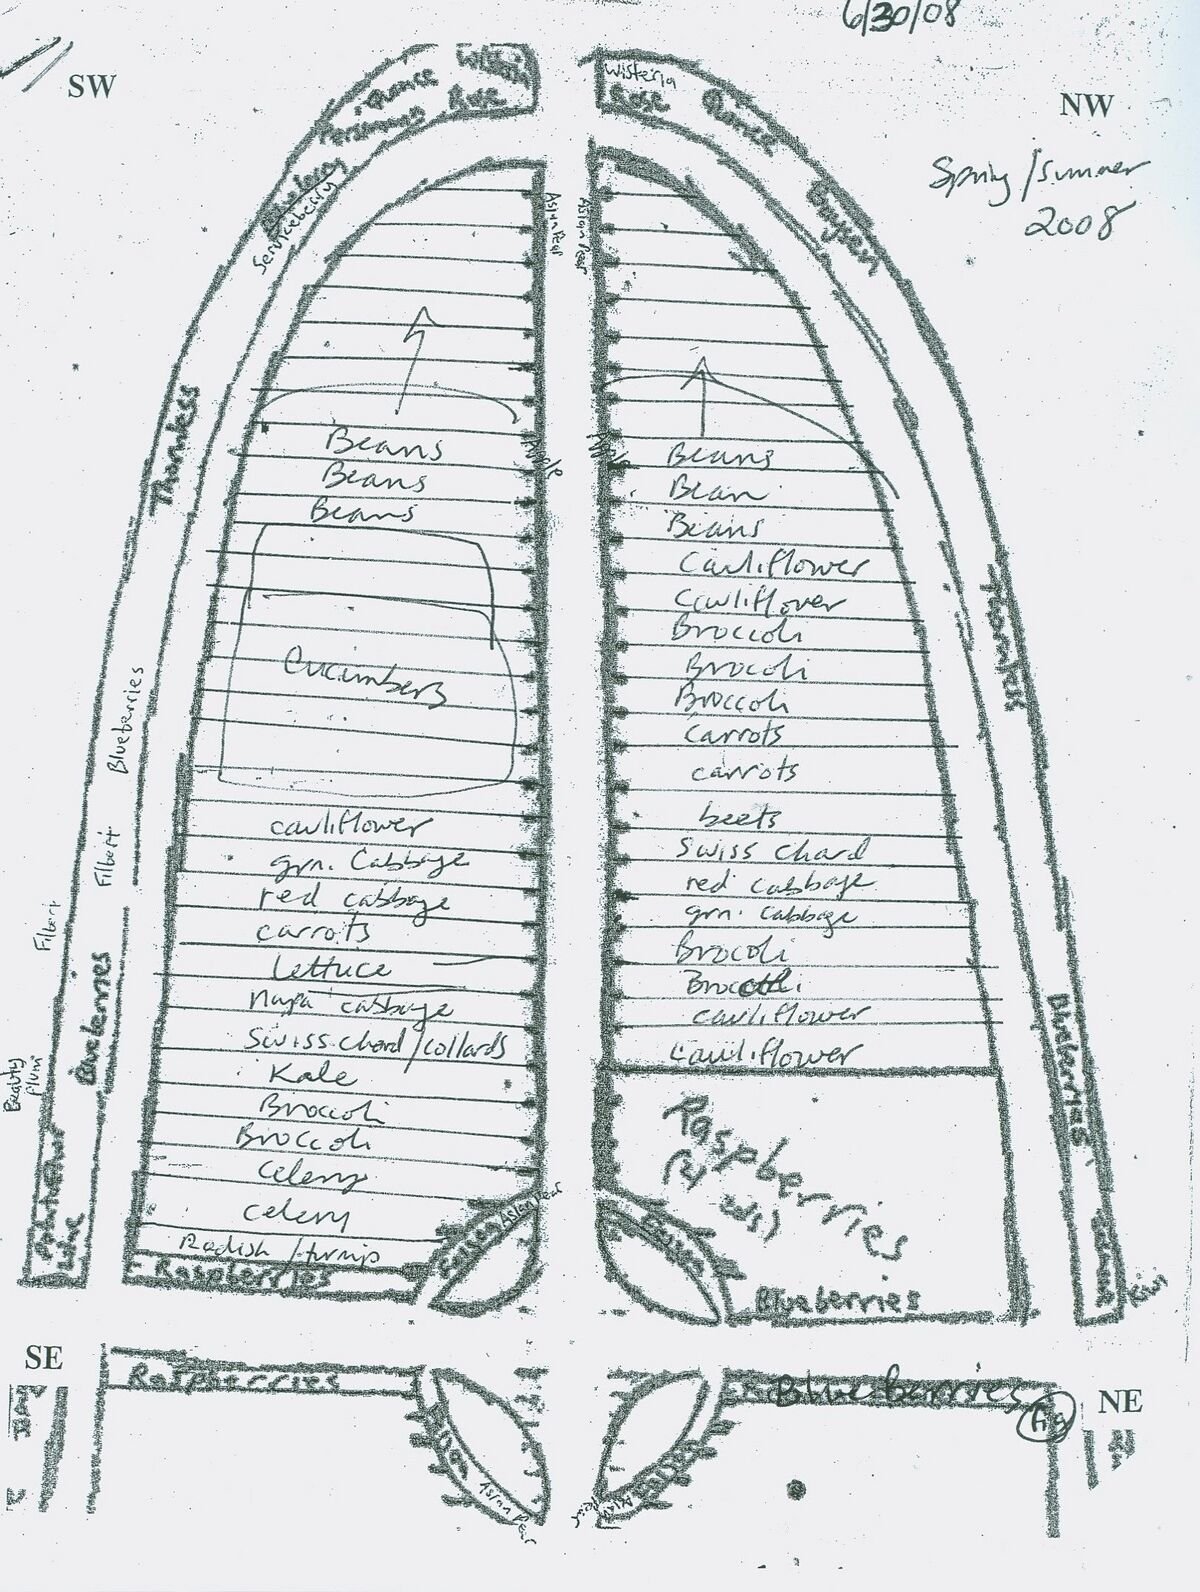 6/30/08
SW
NW
Spring/Summer
2008
Wisteria
Quince
Rose
Persimmon
Serviceberry
Wisteria
Rose
Quince
Asian Pear
Asian Pear
Thornless
Apple
Apple
Beans
Beans
Beans
Cucumbers
cauliflower
grn. Cabbage
red cabbage
carrots
Lettuce
napa cabbage
Swiss chard/collards
Kale
Broccoli
Broccoli
Celery
celery
Radish/turnip
Raspberries
Beans
Bean
Beans
Cauliflower
Cauliflower
Broccoli
Broccoli
Broccoli
carrots
carrots
beets
Swiss chard
red cabbage
grn. cabbage
Broccoli
Broccoli
cauliflower
cauliflower
Raspberries
Blueberries
Blueberries
Filbert
Filbert
Blueberries
Beauty
Plum
Thornless
Blueberries
Kiwi
Asian Pear
SE
NE
Raspberries
Blue Berries
fig
Asian Pear
Asian
Pear